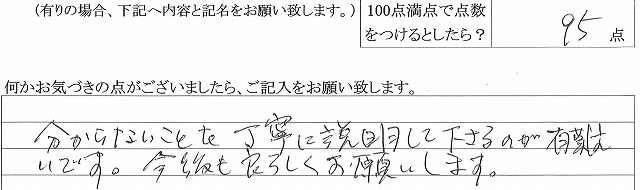 (有りの場合、下記へ内容と記名をお願い致します。)
100点満点で点数
をつけるとしたら？
95 点
何かお気づきの点がございましたら、ご記入をお願い致します。
分からないことを丁寧に説明して下さるのが有難た
いです。今後も宜ろしくお願いします。